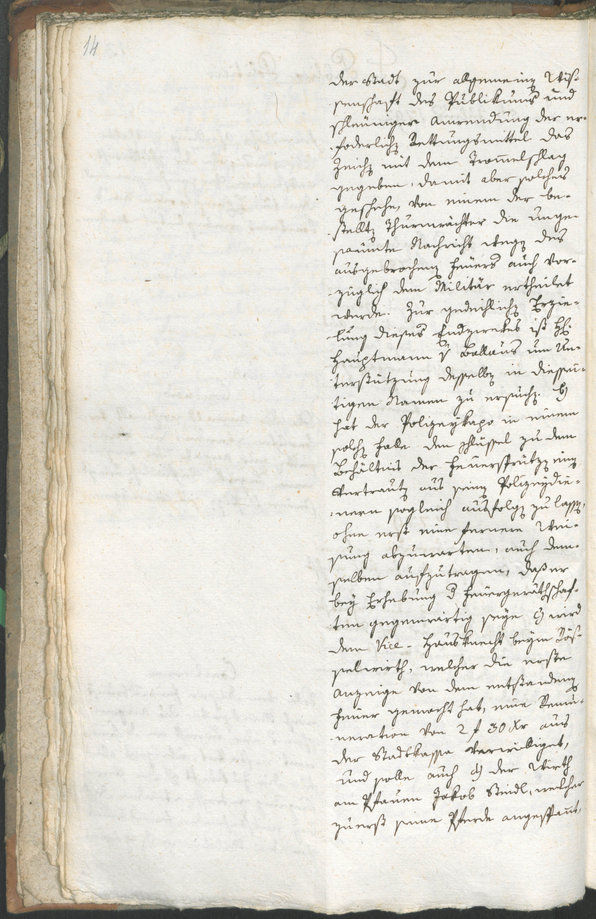 14
der Stadt zur allgemeinen Wis-
senschaft des Publikums und
schleuniger Anwendung der er-
foderlichen Rettungsmittel das
Zeichen mit dem Trommelschlag
gegeben, damit aber solches
geschehe, von einem der be-
stellten Thurmwächter die unge-
säumte Nachricht wegen des
ausgebrochenen Feuers auch vor-
züglich dem Militär ertheilet
werde. Zur gedeihlichen Erzie-
lung dieses Endzweckes ist H:
Hauptmann v Ballaus um Un-
terstützung desselben in diessei-
tigen Namen zu ersuchen.
hat der Polizeykapo in einem
solchen Falle den Schlüssel zu dem
Behältnis der Feuerspritzen einem
Vertrauten aus seinen Polizeydie-
nern sogleich ausfolgen zu lassen,
ohne erst eine fernere Wei-
sung abzuwarten, auch dem-
selben aufzutragen, daß er
bey Erhebung d Feuergeräthschaf-
ten gegenwärtig seye. wird
dem Vice-Hausknecht beym Rös-
selwirth, welcher die erste
Anzeige von dem entstandenen
Feuer gemacht hat, eine Remu-
neration von 2 f 30 Xr aus
der Stadtkasse verwilliget,
und solle auch der Wirth
am Pfauen Jakob Steidl, welcher
zuerst seine Pferde angespannt,